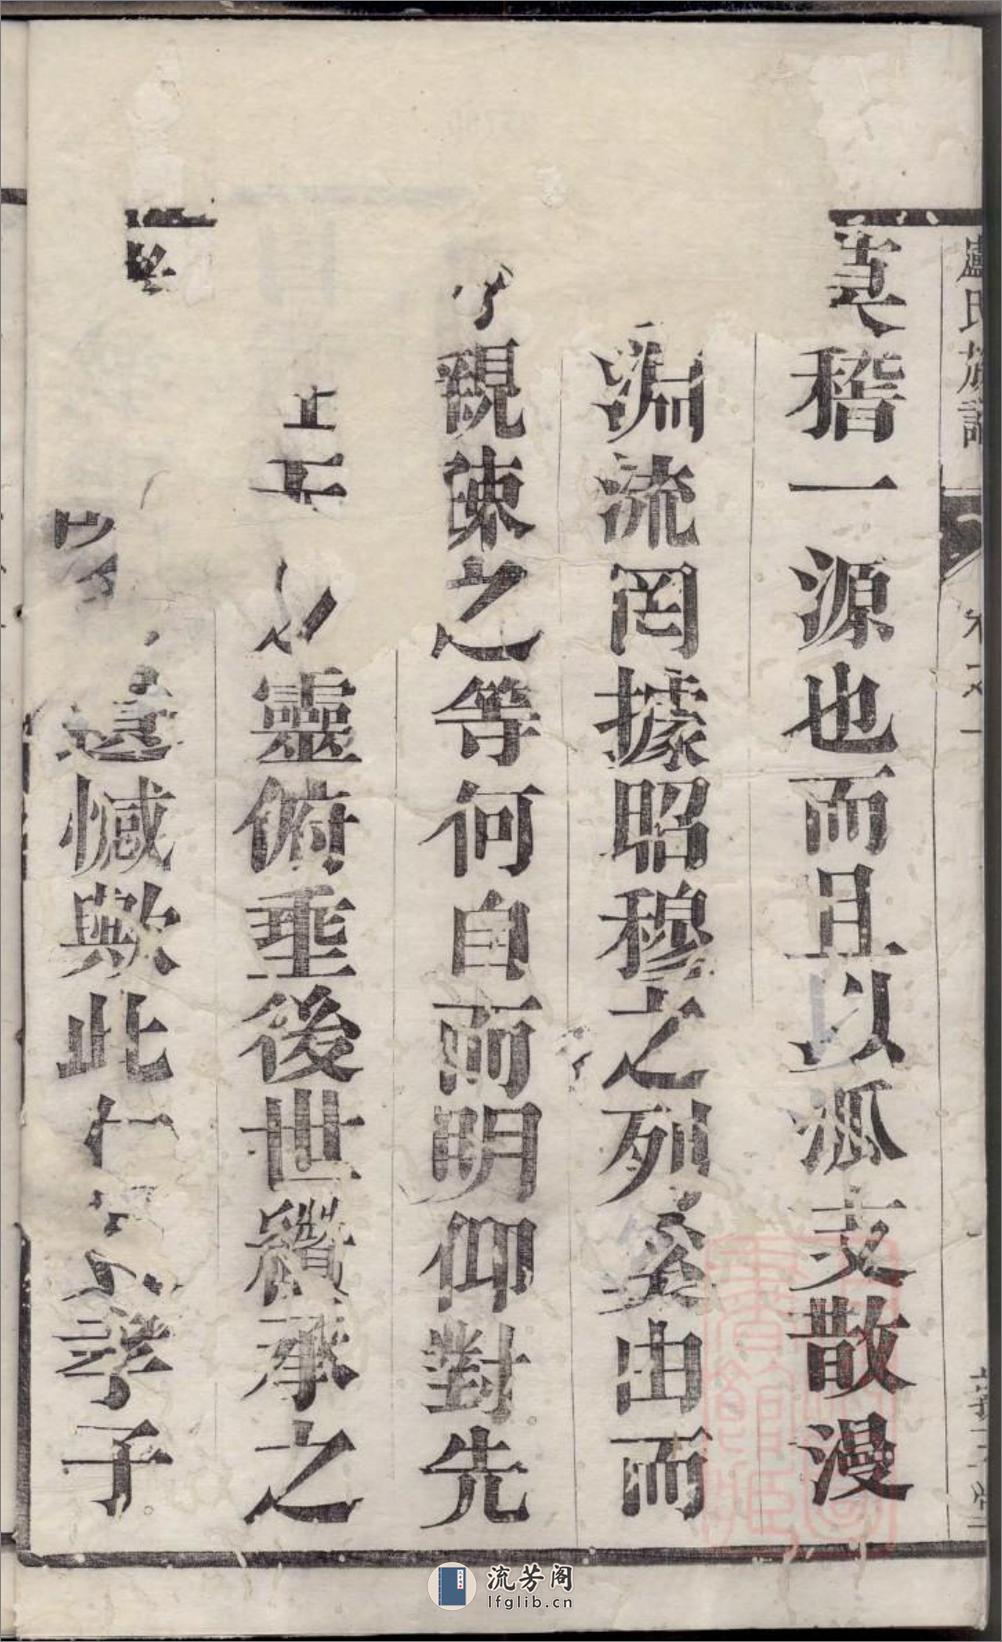 盧氏族譜
莫稽一源也而且以派支散漫
淵流罔據昭穆之列奚由而
親疎之等何自而明仰對先
靈俯垂後世纘承之
遺憾歟此孝子
流芳阁
lfglib.cn